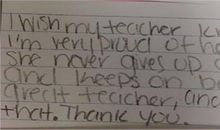 I wish my teacher k
I'm very proud of h
she never gives up
and keeps on b
great teacher, and
that. Thank you.